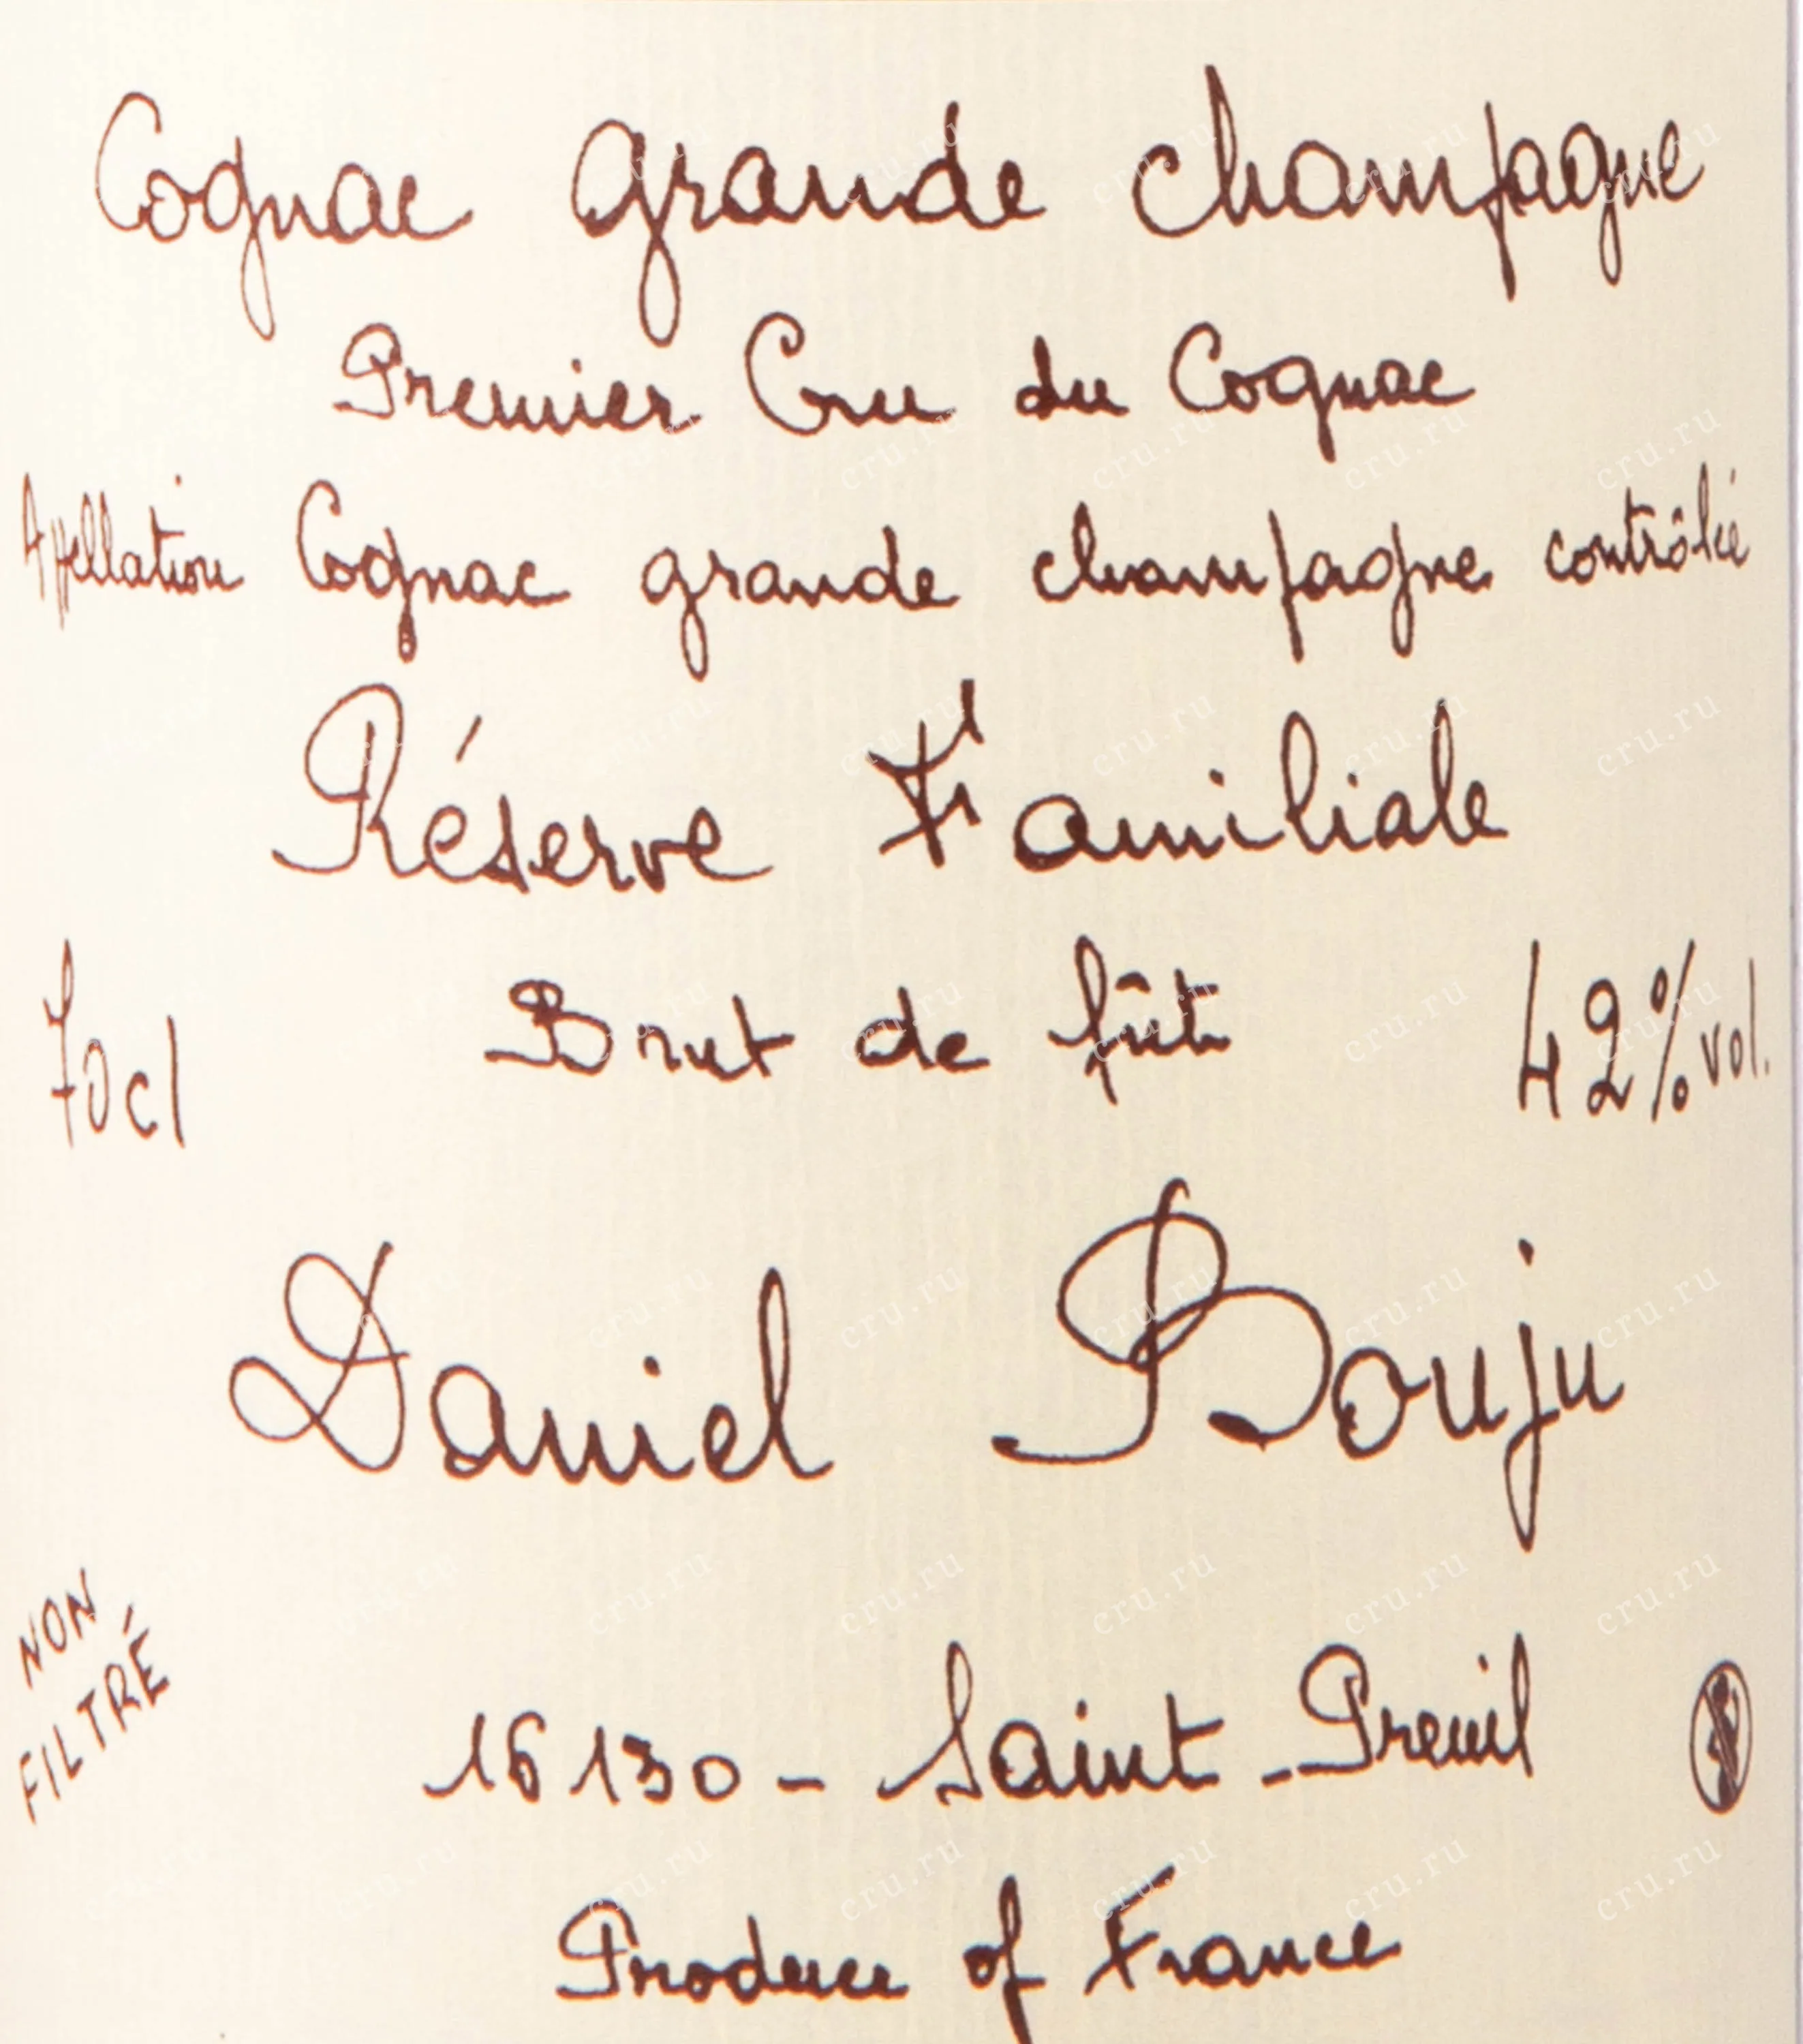 Cognac grande champagne
Premier Cru du Cognac
Appellation Cognac grande champagne contrôlée
Réserve Familiale
70cl Brut de fût 42% vol.
Daniel Bouju
NON
FILTRÉ
16130 - Saint-Preuil
Produce of France
cru.ru